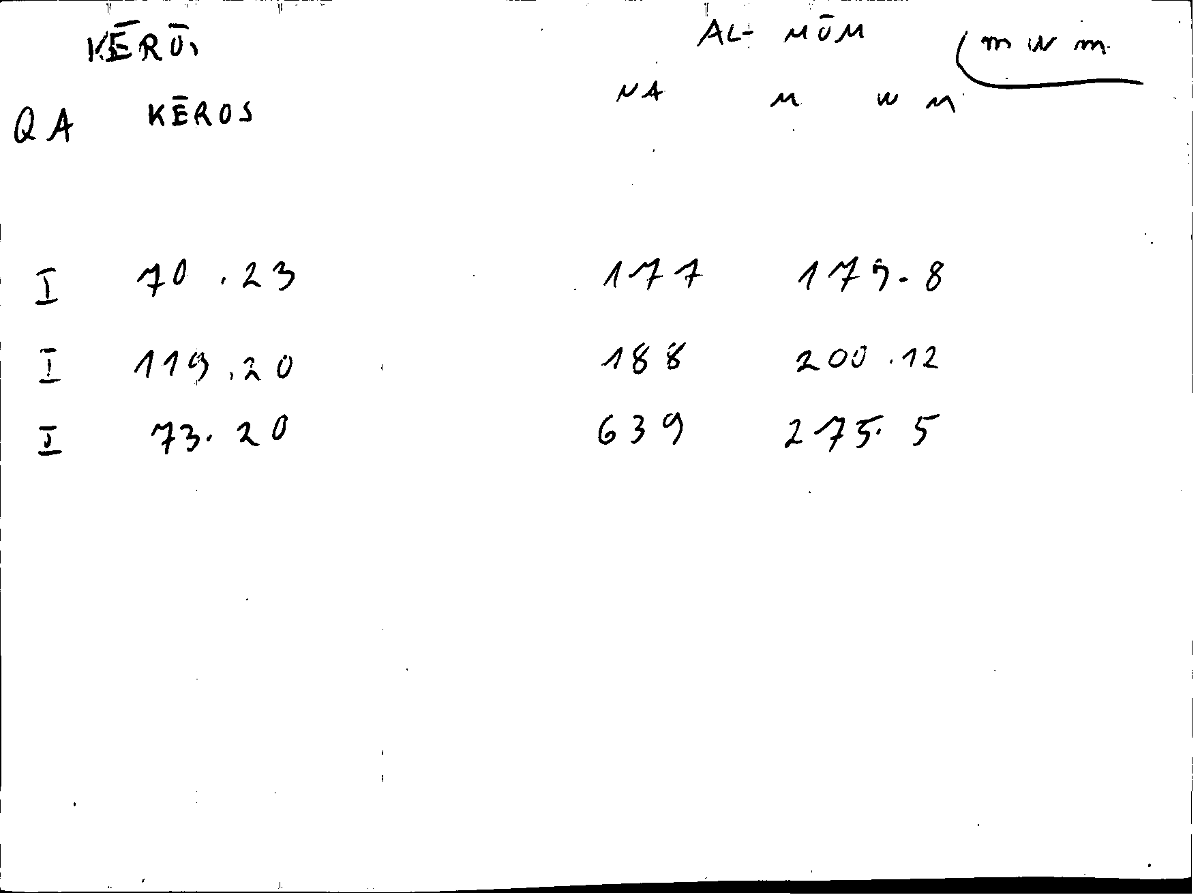 KĒRŌ, AL- MŪM (m w m.
QA KĒROS NA M W M
I 70.23 177 179.8
I 119.20 188 200.12
I 73.20 639 275.5